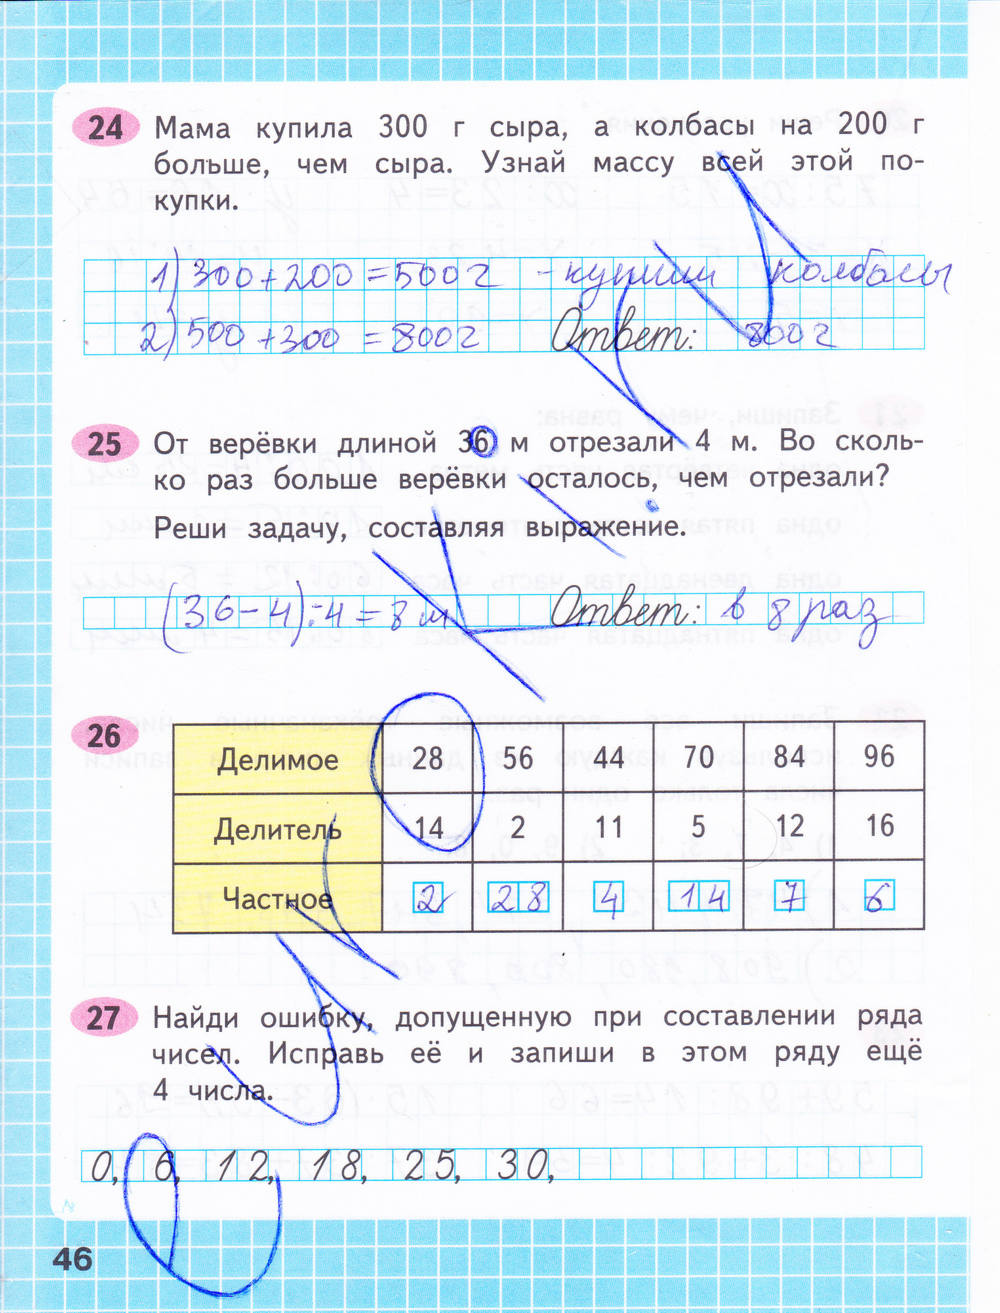 24 Мама купила 300 г сыра, а колбасы на 200 г
больше, чем сыра. Узнай массу всей этой по-
купки.
1) 300 + 200 = 500 г - купили колбасы
2) 500 + 300 = 800 г Ответ: 800 г
25 От верёвки длиной 36 м отрезали 4 м. Во сколь-
ко раз больше верёвки осталось, чем отрезали?
Реши задачу, составляя выражение.
(36 - 4) : 4 = 8 м Ответ: в 8 раз
26
Делимое 28 56 44 70 84 96
Делитель 14 2 11 5 12 16
Частное 2 28 4 14 7 6
27 Найди ошибку, допущенную при составлении ряда
чисел. Исправь её и запиши в этом ряду ещё
4 числа.
0, 6, 12, 18, 25, 30,
46